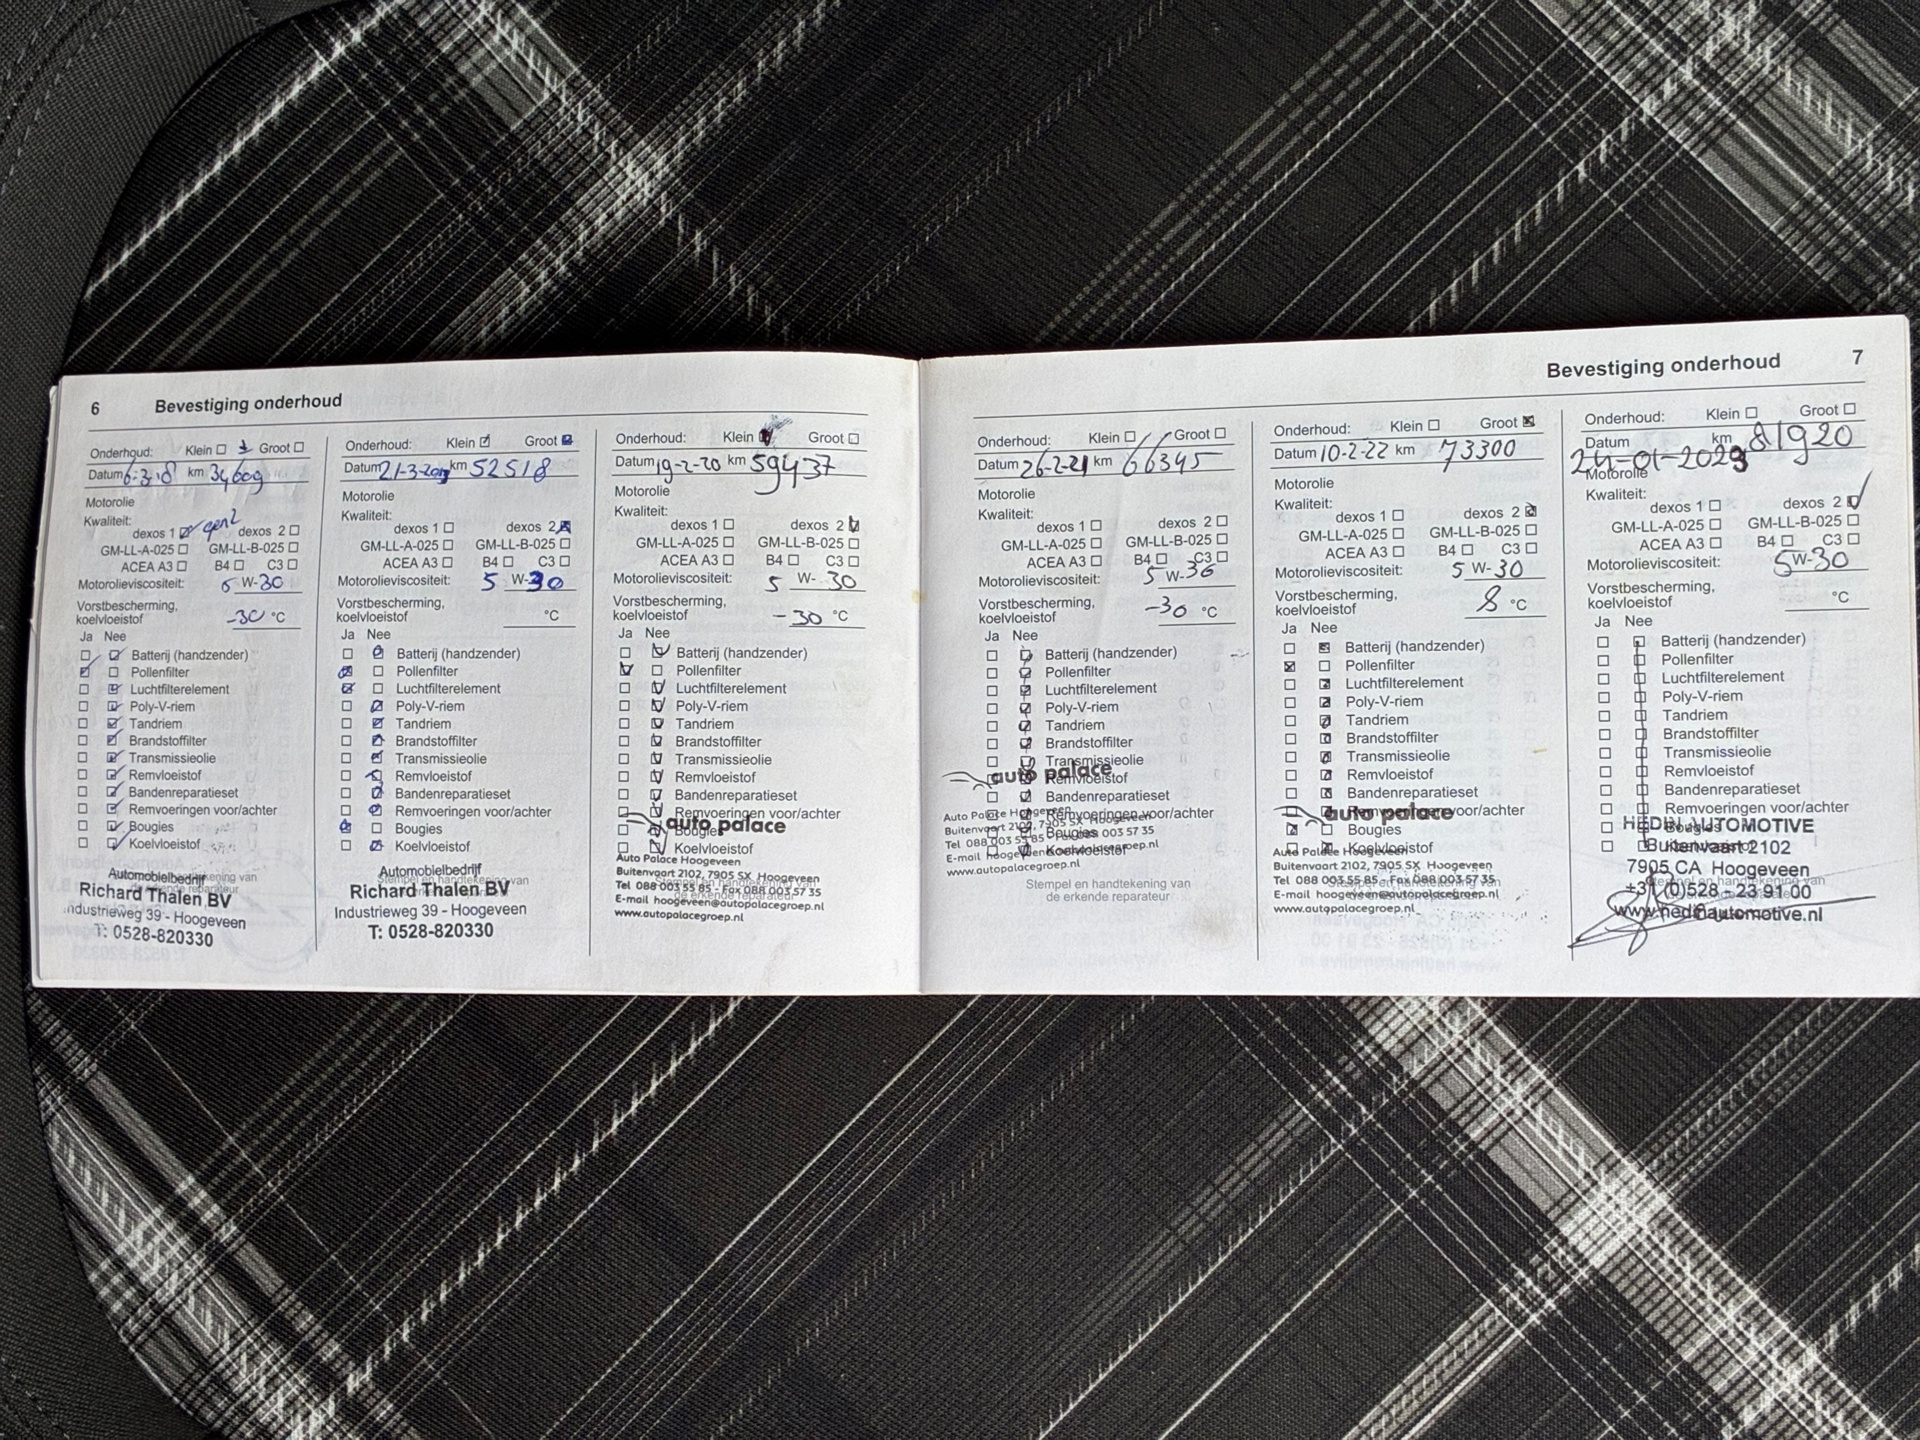 6 Bevestiging onderhoud
Onderhoud: Klein Groot
Datum 6-3-18 km 34609
Motorolie
Kwaliteit:
dexos 1 gen2 dexos 2
GM-LL-A-025 GM-LL-B-025
ACEA A3 B4 C3
Motorolieviscositeit: W-30
Vorstbescherming,
koelvloeistof -30 °C
Ja Nee
Batterij (handzender)
Pollenfilter
Luchtfilterelement
Poly-V-riem
Tandriem
Brandstoffilter
Transmissieolie
Remvloeistof
Bandenreparatieset
Remvoeringen voor/achter
Bougies
Koelvloeistof
Automobielbedrijf
Richard Thalen BV
Industrieweg 39 - Hoogeveen
T: 0528-820330
Onderhoud: Klein Groot
Datum 21-3-2019 km 52518
Motorolie
Kwaliteit:
dexos 1 dexos 2
GM-LL-A-025 GM-LL-B-025
ACEA A3 B4 C3
Motorolieviscositeit: 5 W-30
Vorstbescherming,
koelvloeistof °C
Ja Nee
Batterij (handzender)
Pollenfilter
Luchtfilterelement
Poly-V-riem
Tandriem
Brandstoffilter
Transmissieolie
Remvloeistof
Bandenreparatieset
Remvoeringen voor/achter
Bougies
Koelvloeistof
Automobielbedrijf
Richard Thalen BV
Industrieweg 39 - Hoogeveen
T: 0528-820330
Onderhoud: Klein Groot
Datum 19-2-20 km 59437
Motorolie
Kwaliteit:
dexos 1 dexos 2
GM-LL-A-025 GM-LL-B-025
ACEA A3 B4 C3
Motorolieviscositeit: 5 W-30
Vorstbescherming,
koelvloeistof -30 °C
Ja Nee
Batterij (handzender)
Pollenfilter
Luchtfilterelement
Poly-V-riem
Tandriem
Brandstoffilter
Transmissieolie
Remvloeistof
Bandenreparatieset
Remvoeringen voor/achter
auto palace
Bougies
Koelvloeistof
Auto Palace Hoogeveen
Buitenvaart 2102, 7905 SX Hoogeveen
Tel 088 003 55 85 - Fax 088 003 57 35
E-mail hoogeveen@autopalacegroep.nl
www.autopalacegroep.nl
Bevestiging onderhoud 7
Onderhoud: Klein Groot
Datum 26-2-21 km 66345
Motorolie
Kwaliteit:
dexos 1 dexos 2
GM-LL-A-025 GM-LL-B-025
ACEA A3 B4 C3
Motorolieviscositeit: 5 W-30
Vorstbescherming,
koelvloeistof -30 °C
Ja Nee
Batterij (handzender)
Pollenfilter
Luchtfilterelement
Poly-V-riem
Tandriem
Brandstoffilter
Transmissieolie
auto palace
Remvloeistof
Bandenreparatieset
Remvoeringen voor/achter
Bougies
Koelvloeistof
Auto Palace Hoogeveen
Buitenvaart 2102, 7905 SX Hoogeveen
Tel 088 003 55 85 - Fax 088 003 57 35
E-mail hoogeveen@autopalacegroep.nl
www.autopalacegroep.nl
Stempel en handtekening van
de erkende reparateur
Onderhoud: Klein Groot
Datum 10-2-22 km 73300
Motorolie
Kwaliteit:
dexos 1 dexos 2
GM-LL-A-025 GM-LL-B-025
ACEA A3 B4 C3
Motorolieviscositeit: 5 W-30
Vorstbescherming,
koelvloeistof 8 °C
Ja Nee
Batterij (handzender)
Pollenfilter
Luchtfilterelement
Poly-V-riem
Tandriem
Brandstoffilter
Transmissieolie
Remvloeistof
Bandenreparatieset
Remvoeringen voor/achter
auto palace
Bougies
Koelvloeistof
Auto Palace Hoogeveen
Buitenvaart 2102, 7905 SX Hoogeveen
Tel 088 003 55 85 - Fax 088 003 57 35
E-mail hoogeveen@autopalacegroep.nl
www.autopalacegroep.nl
Onderhoud: Klein Groot
Datum km 81920
24-01-2023
Motorolie
Kwaliteit:
dexos 1 dexos 2
GM-LL-A-025 GM-LL-B-025
ACEA A3 B4 C3
Motorolieviscositeit: 5W-30
Vorstbescherming,
koelvloeistof °C
Ja Nee
Batterij (handzender)
Pollenfilter
Luchtfilterelement
Poly-V-riem
Tandriem
Brandstoffilter
Transmissieolie
Remvloeistof
Bandenreparatieset
Remvoeringen voor/achter
Bougies
HEDIN AUTOMOTIVE
Buitenvaart 2102
7905 CA Hoogeveen
+31 (0)528 - 23 91 00
www.hedinautomotive.nl
Stempel en handtekening van